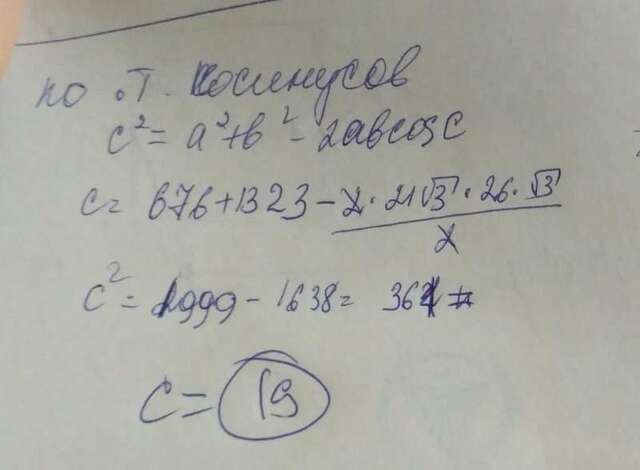 по т. Косинусов
c² = a² + b² - 2abcosC
c = 676 + 1323 - 2 · 21√3 · 26 · √3 / 2
c² = 1999 - 1638 = 361
c = 19